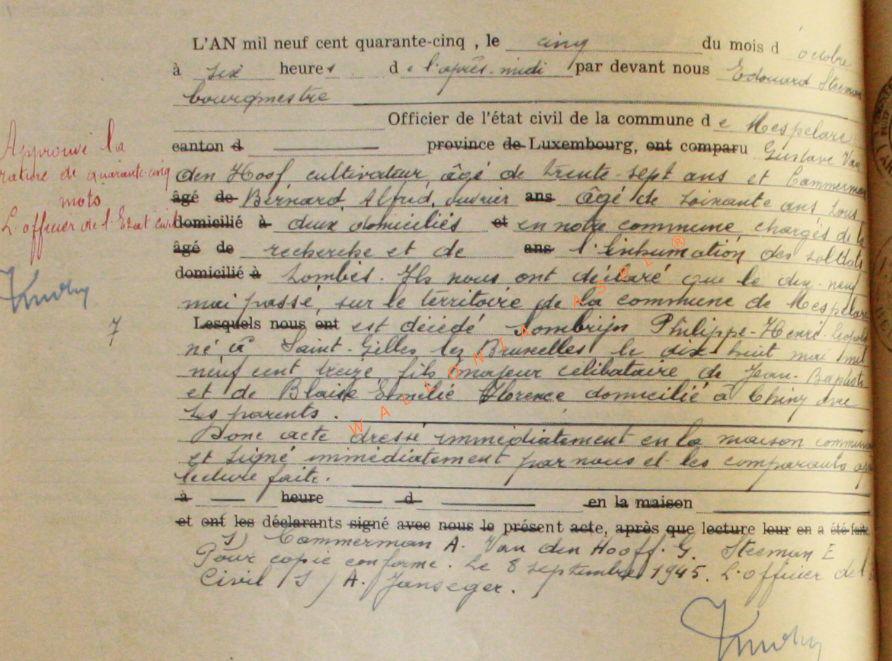 L'AN mil neuf cent quarante-cinq, le cinq du mois d octobre
à six heures de l'après-midi par devant nous Edouard Steeman
bourgmestre
Officier de l'état civil de la commune de Mespelare
canton d province de Luxembourg, ont comparu Gustave Van
den Hoof cultivateur, âgé de trente-sept ans et Commerman
âgé de Bernard, Alfred, ouvrier ans âgé de soixante ans tous
domicilié à deux domiciliés et en notre commune, chargés de la
âgé de recherche et de ans l'inhumation des soldats
domicilié à tombés. Ils nous ont déclaré que le dix-neuf
mai passé, sur le territoire de la commune de Mespelare
Lesquels nous ont est décédé Sombrijn Philippe-Henri-Léopold
né à Saint-Gilles lez Bruxelles le dix huit mai mil
neuf cent treize, fils majeur célibataire de Jean-Baptiste
et de Blaise Florence domicilié à Chiny avec
ses parents.
Donc acte dressé immédiatement en la maison communale
et signé immédiatement par nous et les comparants après
lecture faite.
à heure d en la maison
et ont les déclarants signé avec nous le présent acte, après que lecture leur en a été faite
S) Commerman A. Van den Hooff. G. Steeman E
Pour copie conforme. Le 8 septembre 1945. L'officier de l'
Civil S) A. Janseger.
Approuvé la
rature de quarante-cinq
mots
L'officier de l'Etat civil
7
WALLONIA ASBL ®